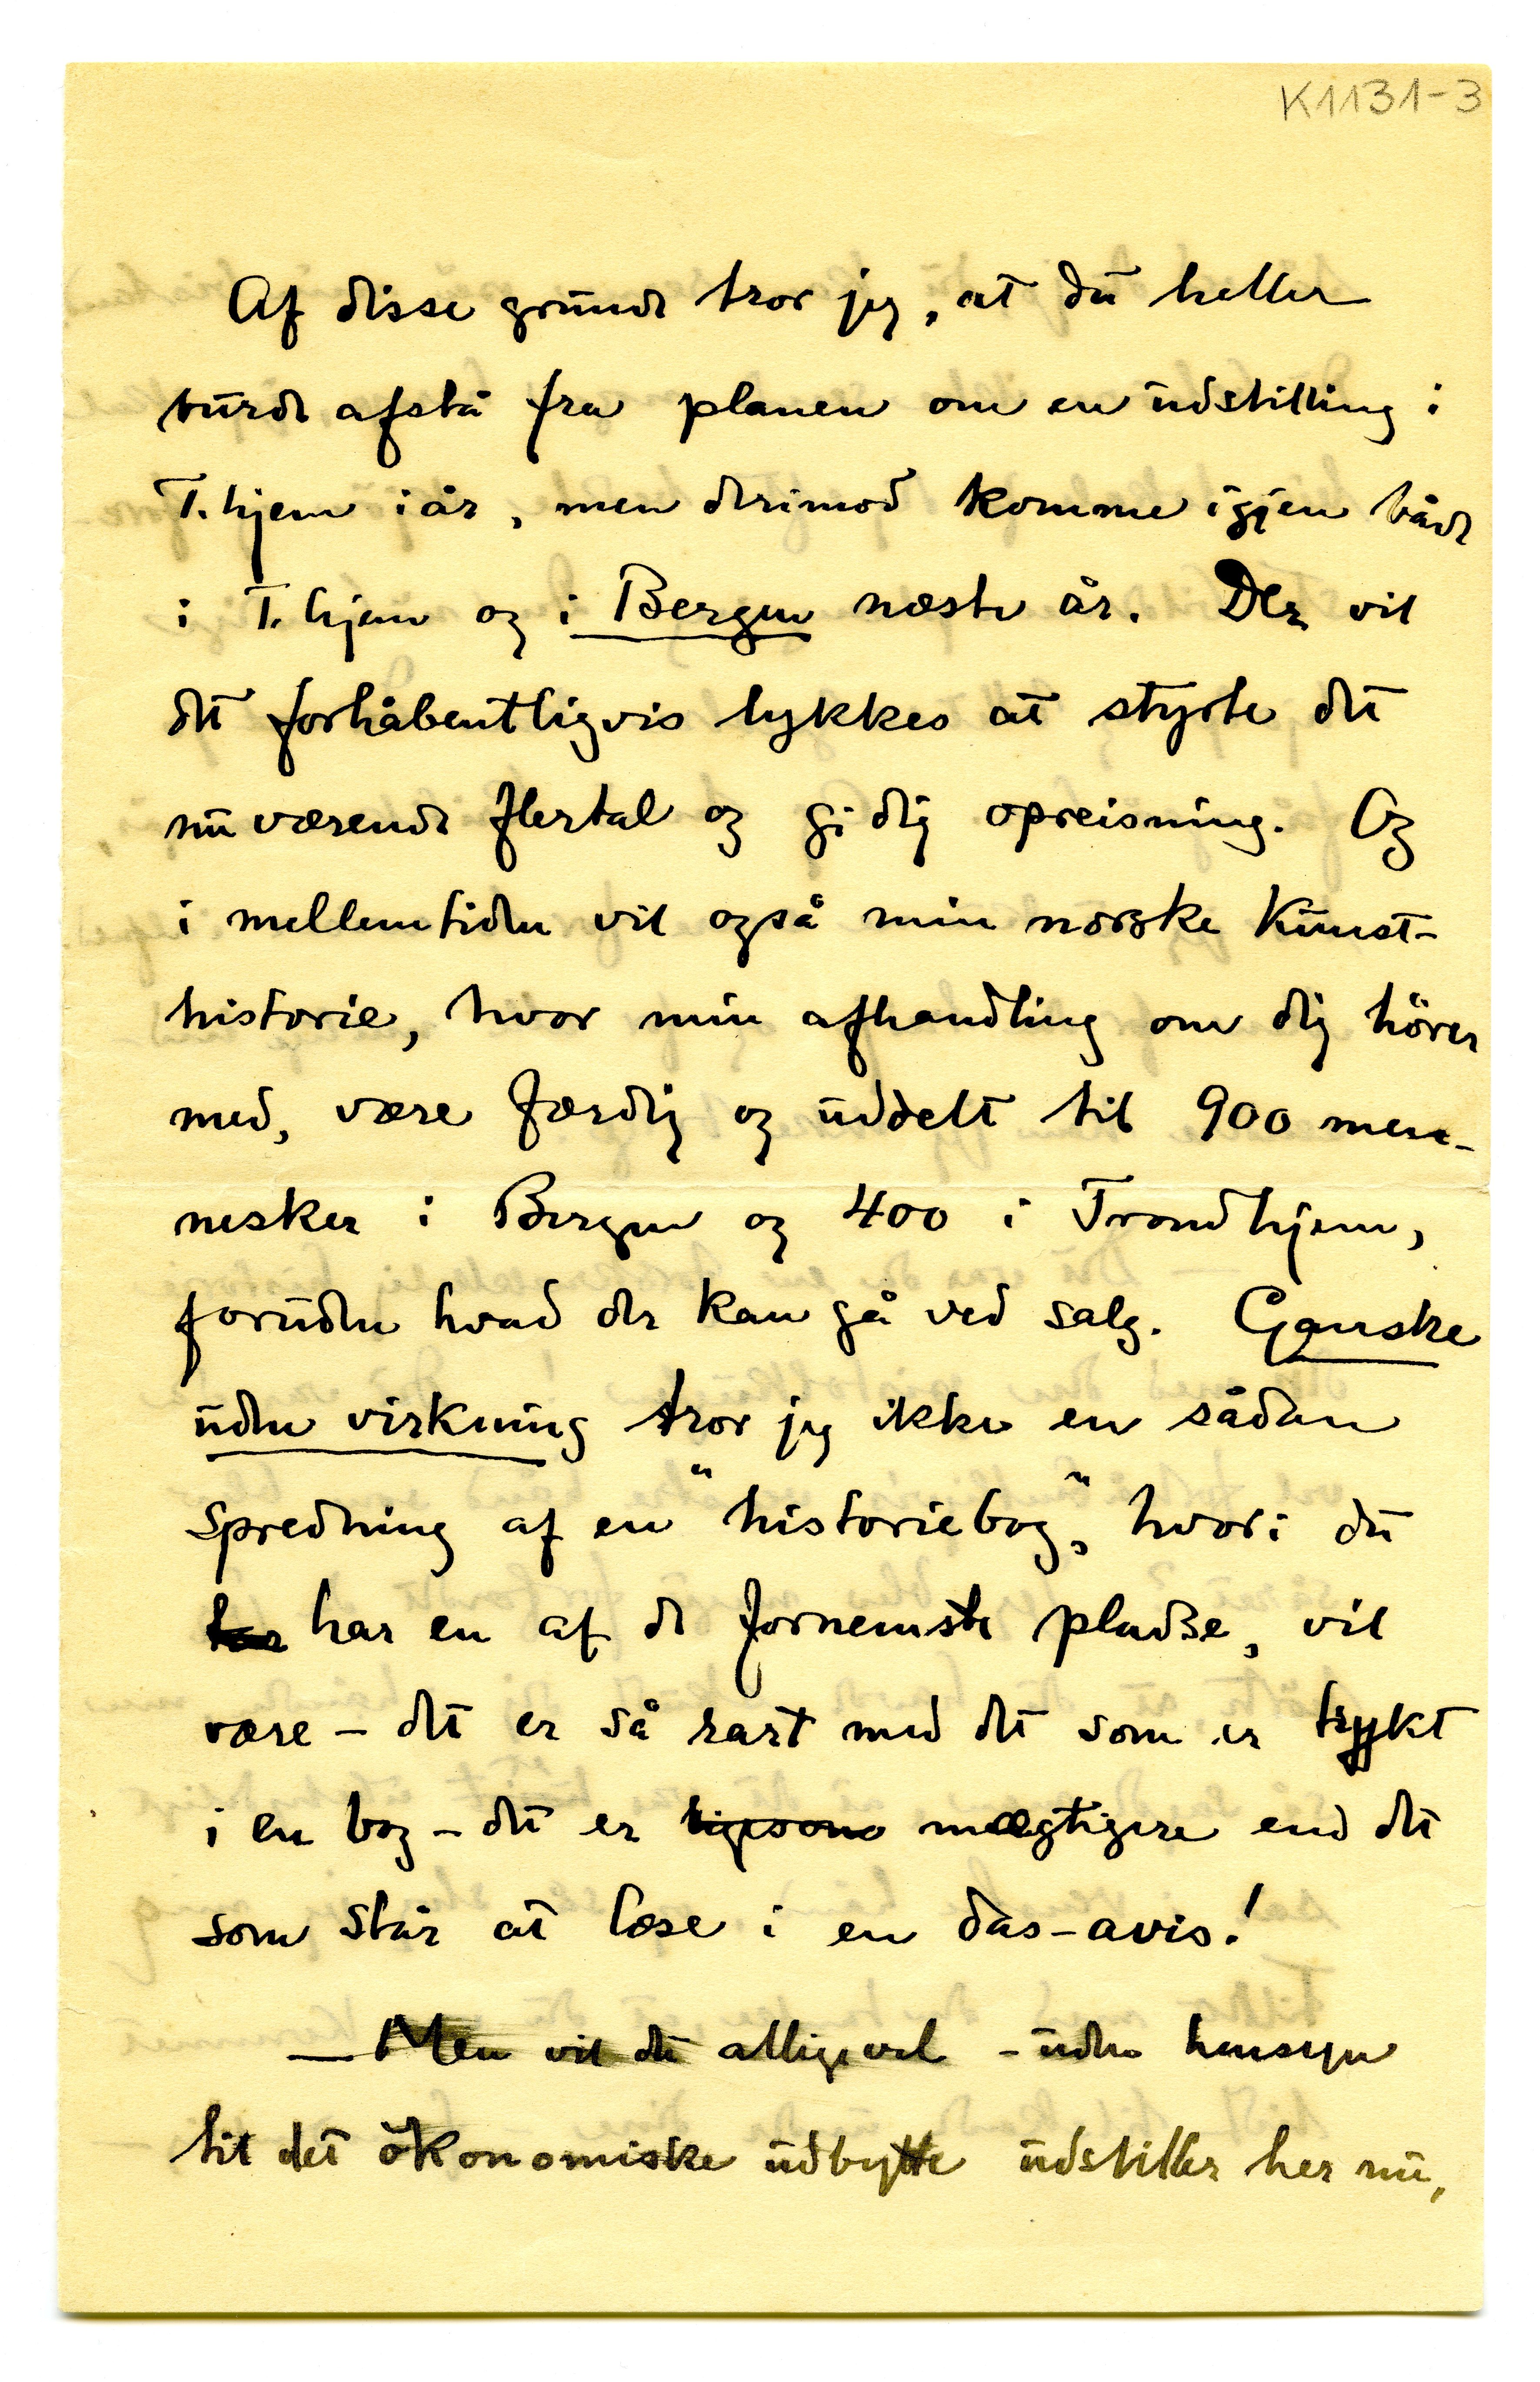 K1131-3
Af disse grunde tror jeg, at du heller
burde afstå fra planen om en udstilling i
T.hjem i år, men derimod komme igjen både
i T.hjem og i Bergen næste år. Der vil
det forhåbentligvis lykkes at styrte det
nuværende flertal og gi dig opreisning. Og
i mellemtiden vil også min norske kunst-
historie, hvor min afhandling om dig hörer
med, være færdig og uddelt til 900 men-
nesker i Bergen og 400 i Trondhjem,
foruden hvad der kan gå ved salg. Ganske
uden virkning tror jeg ikke en sådan
spredning af en "historiebog", hvori du
har en af de fornemste pladse, vil
være – det er så rart med det som er trykt
i en bog – det er ligesom mægtigere end det
som står at læse i en das-avis!
— Men vil du alligevel – uden hensyn
til det ökonomiske udbytte udstiller her nu,